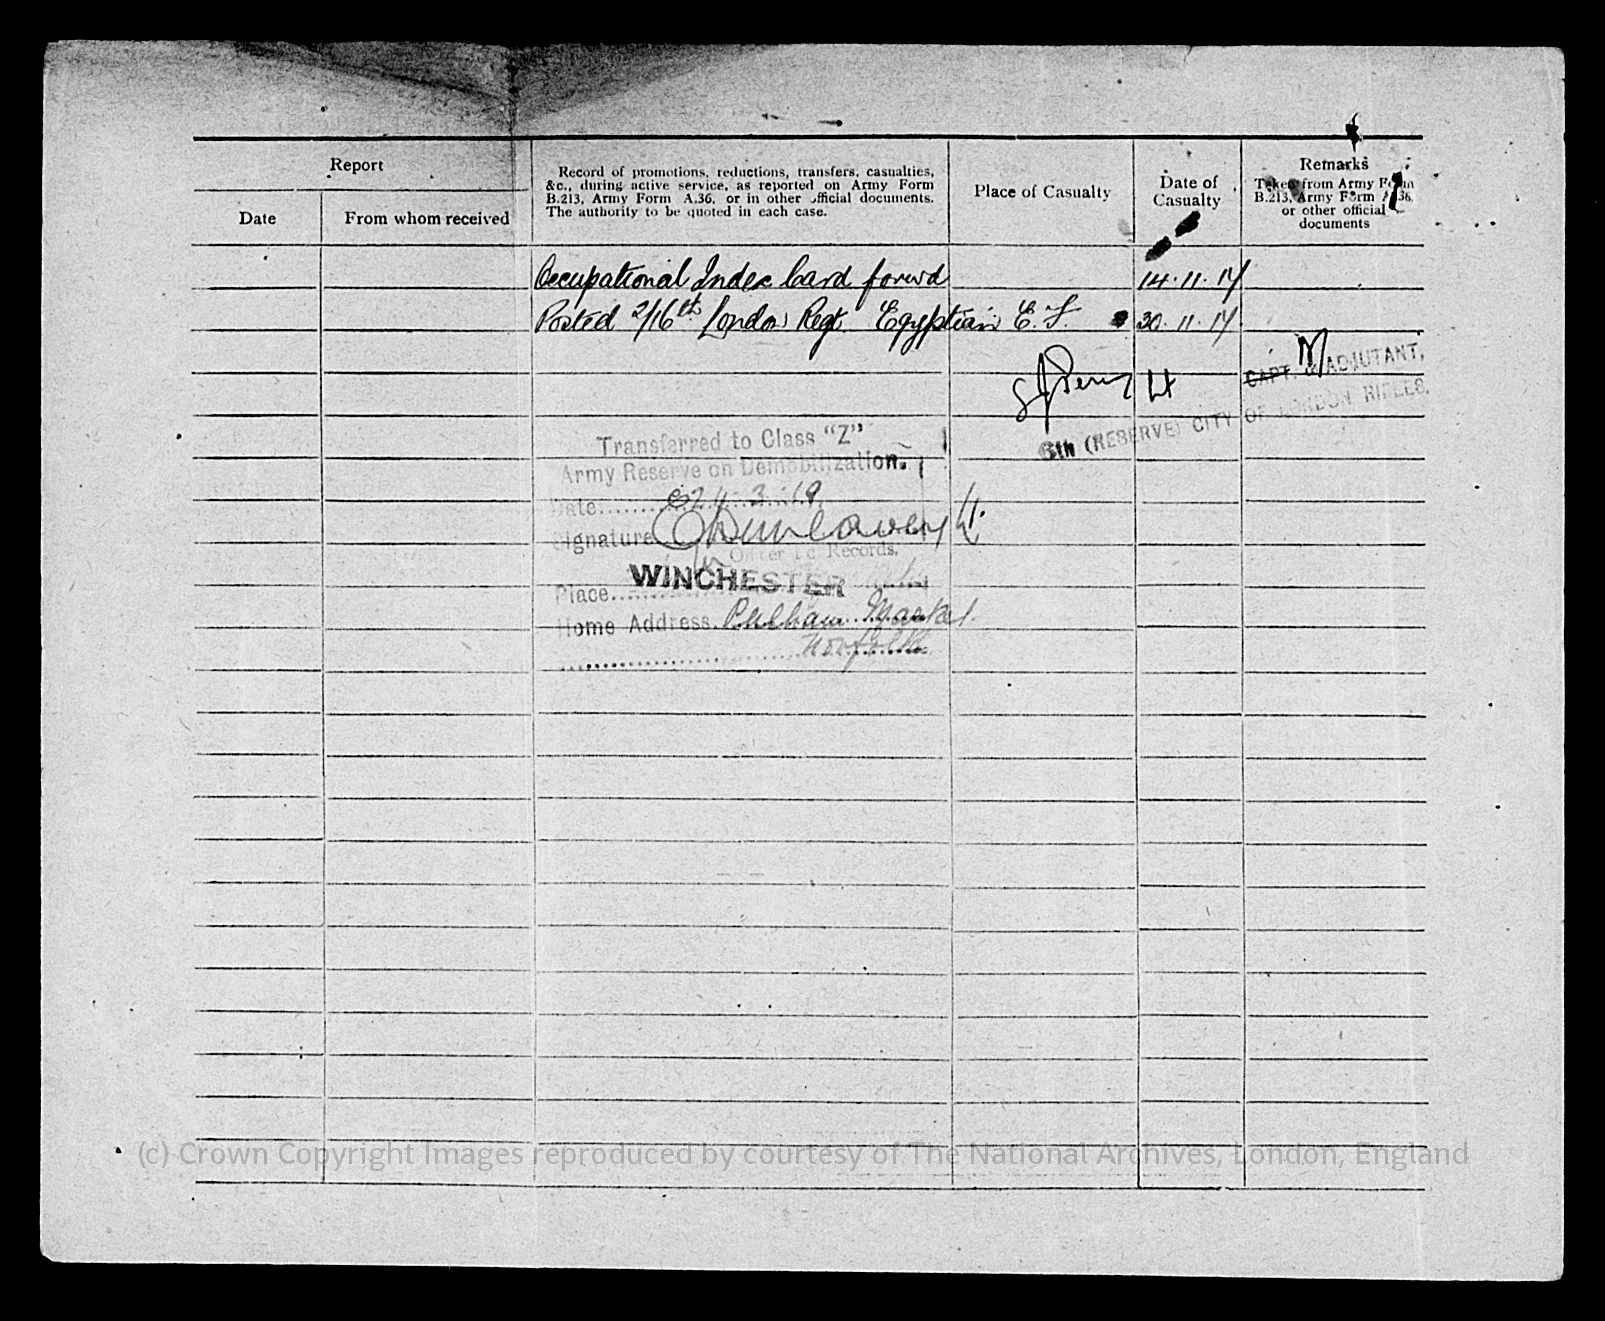 Report
Date
From whom received
Record of promotions, reductions, transfers, casualties,
&c., during active service, as reported on Army Form
B.213, Army Form A.36, or in other official documents.
The authority to be quoted in each case.
Place of Casualty
Date of
Casualty
Remarks
Taken from Army Form
B.213, Army Form A.36,
or other official
documents
Occupational Index Card forwd 14.11.17
Posted 2/16th London Regt. Egyptian E. F. 30.11.17
Lt
CAPT. & ADJUTANT,
6th (RESERVE) CITY OF LONDON RIFLES.
Transferred to Class "Z"
Army Reserve on Demobilization.
Date 24.3.19
Signature Lt.
Officer i/c Records.
Place WINCHESTER
Home Address Pulham Market
Norfolk
(c) Crown Copyright Images reproduced by courtesy of The National Archives, London, England